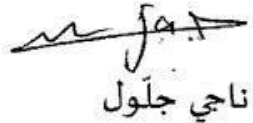 ناجي جلّول